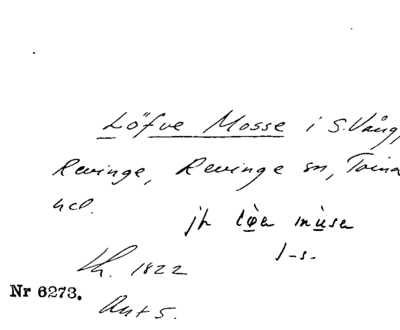 Löfve Mosse i S. Vång,
Revinge, Revinge sn, Torna
hd.
jfr lø̀a mùsa
1-s.
Kh. 1822
Nr 6273.
Ant 5.